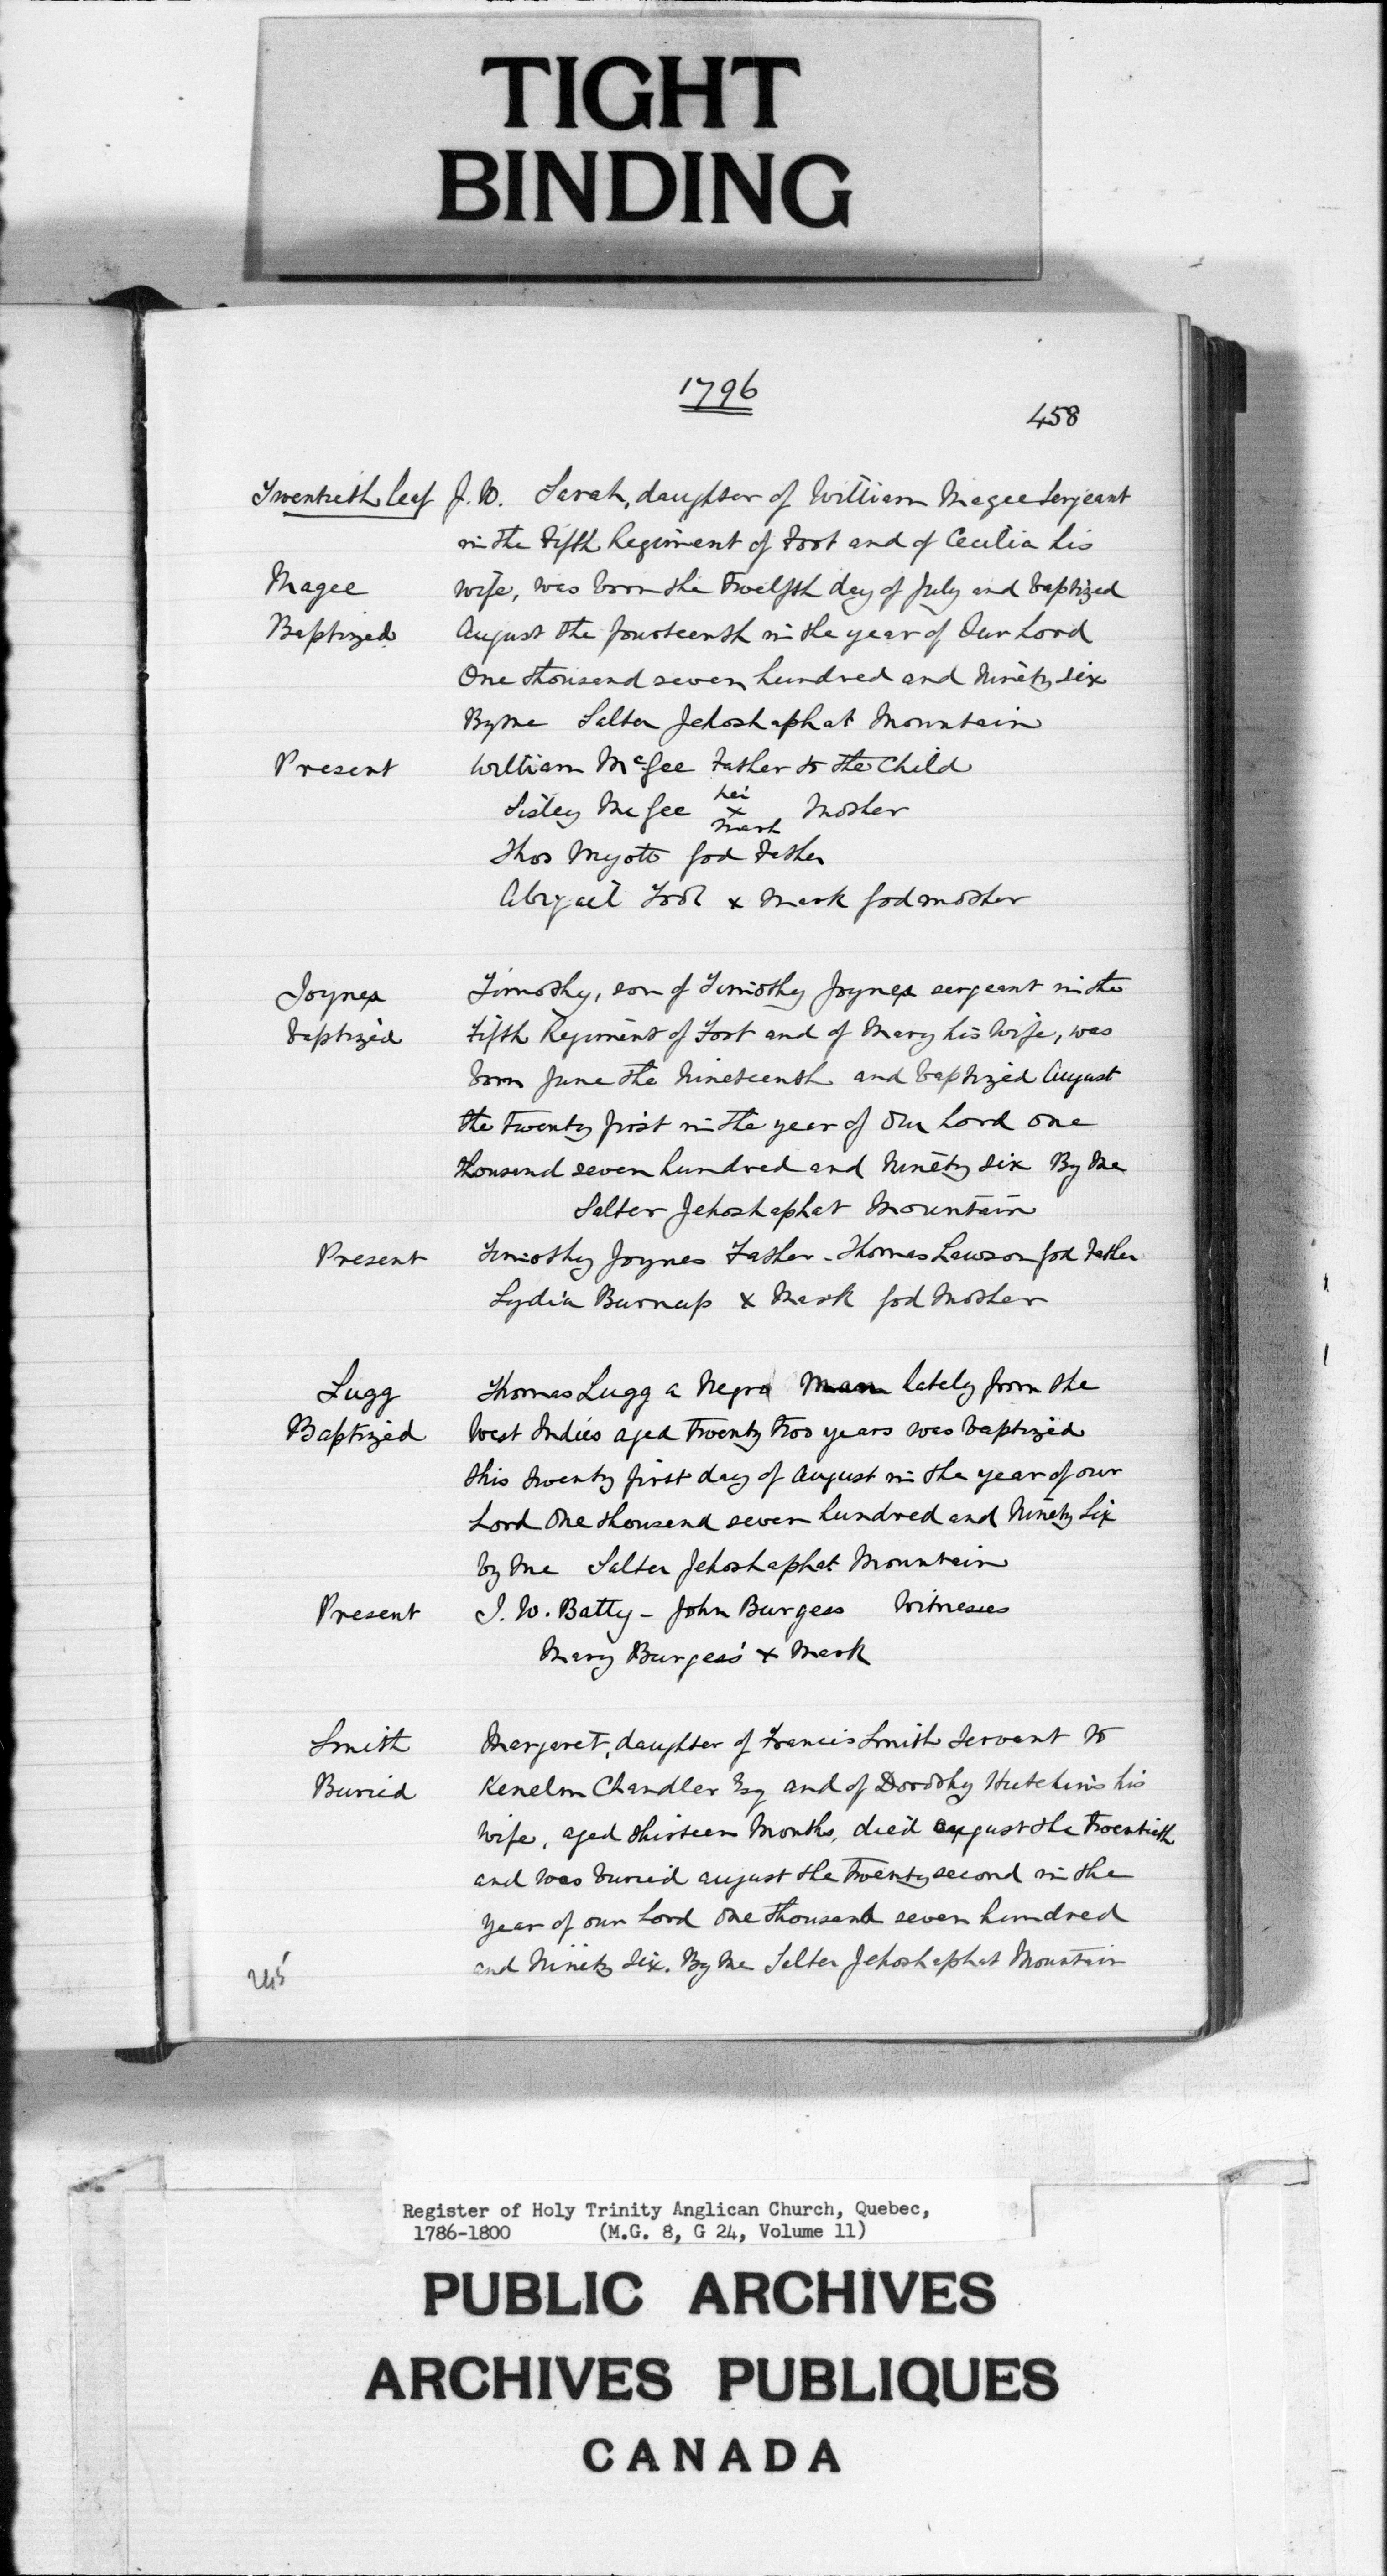 TIGHT
BINDING
1796
458
Twentieth leaf J. W. Sarah, daughter of William Magee Serjeant
in the Fifth Regiment of Foot and of Cecilia his
Magee wife, was born the twelfth day of July and baptized
Baptized August the fourteenth in the year of Our Lord
One thousand seven hundred and Ninety six
By me Salter Jehoshaphat Mountain
Present William McGee Father to the Child
Sisley McGee her x mark Mother
Thos Myott God Father
Abigail x Mark God mother
Joynes Timothy, son of Timothy Joynes sergeant in the
baptized Fifth Regiment of Foot and of Mary his wife, was
born June the Nineteenth and baptized August
the twenty first in the year of Our Lord One
thousand seven hundred and Ninety six By Me
Salter Jehoshaphat Mountain
Present Timothy Joynes Father - Thomas Lawson God Father
Lydia Burnap x Mark God Mother
Lugg Thomas Lugg a Negro Man lately from the
Baptized West Indies aged twenty two years was baptized
this twenty first day of August in the year of our
Lord One thousand seven hundred and Ninety Six
by Me Salter Jehoshaphat Mountain
Present J. W. Batty - John Burgess Witnesses
Mary Burgess x Mark
Smith Margaret, daughter of Francis Smith Servant to
Buried Kenelm Chandler Esq and of Dorothy Hutchins his
wife, aged thirteen Months, died august the twentieth
and was buried august the twenty second in the
year of our Lord One thousand seven hundred
and Ninety Six. By Me Salter Jehoshaphat Mountain
Register of Holy Trinity Anglican Church, Quebec,
1786-1800 (M.G. 8, G 24, Volume 11)
PUBLIC ARCHIVES
ARCHIVES PUBLIQUES
CANADA